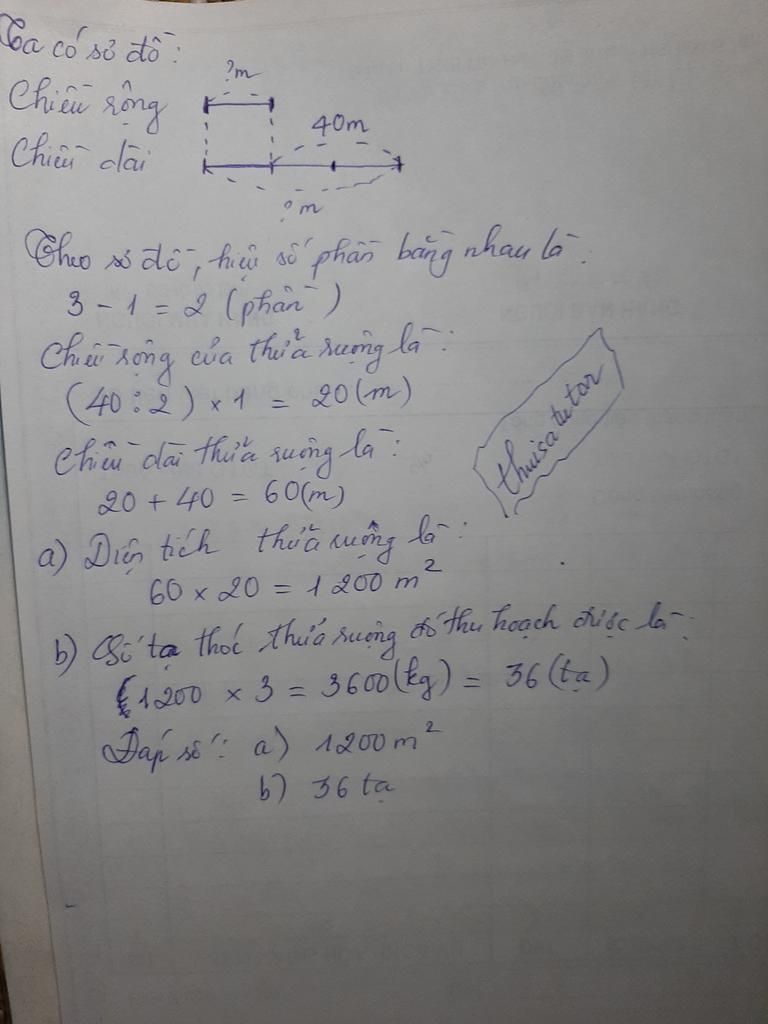 Ta có sơ đồ:
?m
Chiều rộng
40m
Chiều dài
?m
Theo sơ đồ, hiệu số phần bằng nhau là:
3 - 1 = 2 (phần)
Chiều rộng của thửa ruộng là:
(40 : 2) × 1 = 20 (m)
Chiều dài thửa ruộng là:
20 + 40 = 60(m)
thuisatutor
a) Diện tích thửa ruộng là:
60 × 20 = 1 200 m²
b) Số tạ thóc thửa ruộng đó thu hoạch được là:
1200 × 3 = 3600(kg) = 36 (tạ)
Đáp số: a) 1200m²
b) 36 tạ